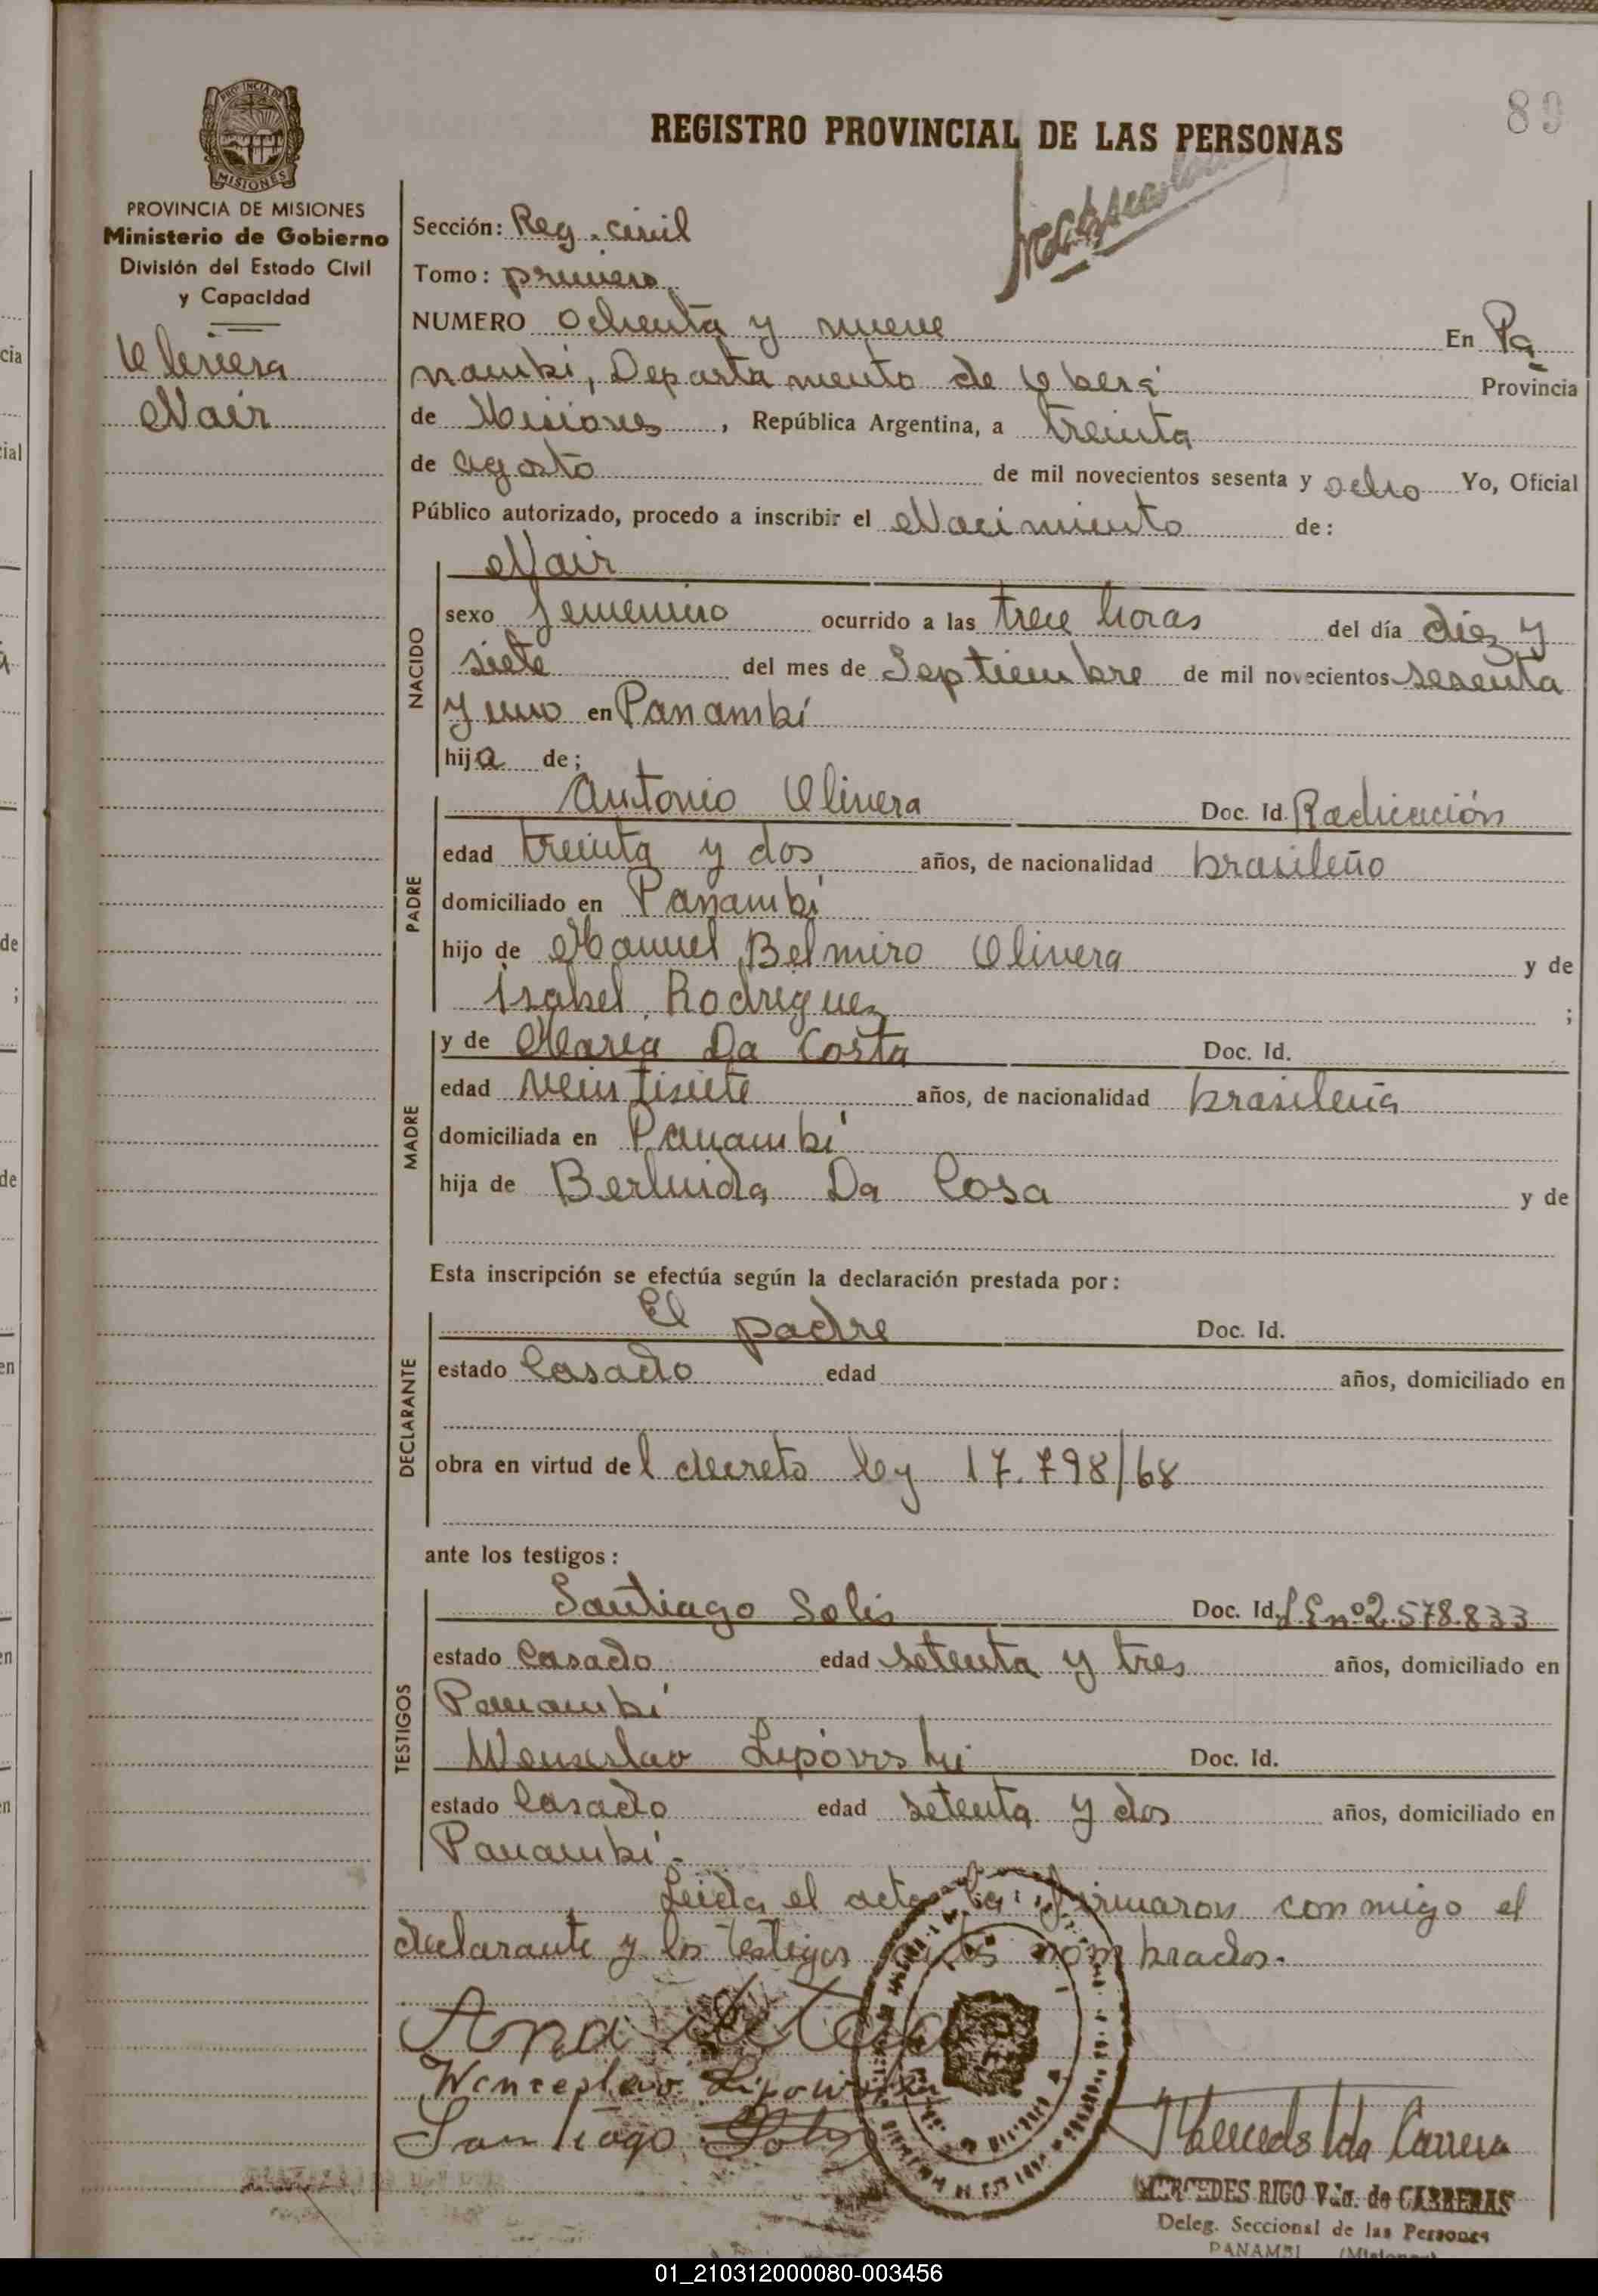 89
REGISTRO PROVINCIAL DE LAS PERSONAS
PROVINCIA DE MISIONES
PROVINCIA DE MISIONES
Ministerio de Gobierno
División del Estado Civil
y Capacidad
Olivera
Nair
Sección: Reg. civil
Tomo: primero
NUMERO Ochenta y nueve En Pa
nambí, Departamento de Oberá Provincia
de Misiones, República Argentina, a treinta
de agosto de mil novecientos sesenta y ocho Yo, Oficial
Público autorizado, procedo a inscribir el Nacimiento de:
NACIDO
Nair
sexo femenino ocurrido a las trece horas del día diez y
siete del mes de Septiembre de mil novecientos sesenta
y uno en Panambí
hija de;
PADRE
Antonio Olivera Doc. Id. Radicación
edad treinta y dos años, de nacionalidad brasileño
domiciliado en Panambí
hijo de Manuel Belmiro Olivera y de
Isabel Rodriguez ;
MADRE
y de Maria Da Costa Doc. Id.
edad veintisiete años, de nacionalidad brasileña
domiciliada en Panambí
hija de Berluida Da Cosa y de
Esta inscripción se efectúa según la declaración prestada por:
DECLARANTE
El padre Doc. Id.
estado Casado edad años, domiciliado en
obra en virtud del decreto ley 17.798/68
ante los testigos:
TESTIGOS
Santiago Solis Doc. Id. L E nº 2.578.833
estado Casado edad setenta y tres años, domiciliado en
Panambí
Wenseslao Lipovvski Doc. Id.
estado Casado edad setenta y dos años, domiciliado en
Panambí.
Leida el acta la firmaron conmigo el
declarante y los testigos antes nombrados.
Wenceslavo
Santiago Solis
MERCEDES RIGO Vda. de CARRERAS
Deleg. Seccional de las Personas
PANAMBI (Misiones)
01_210312000080-003456